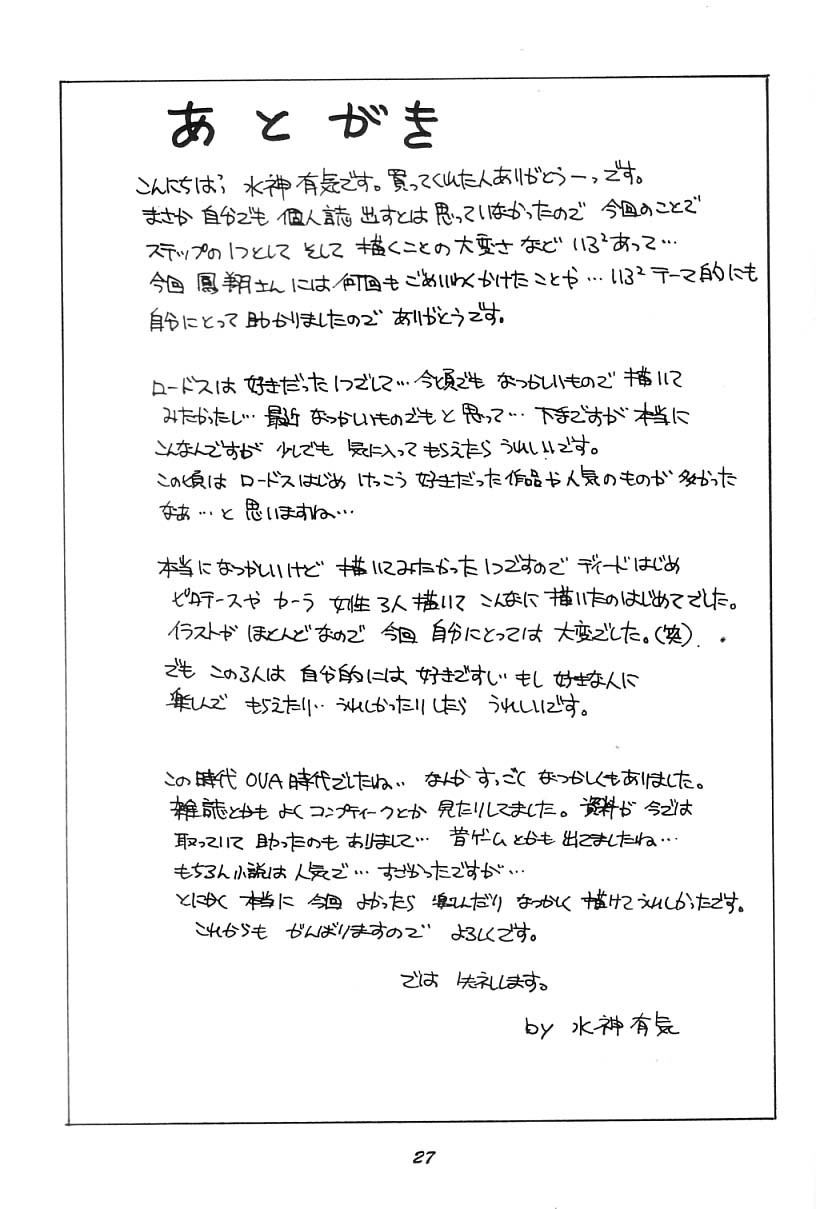 あとがき
こんにちは、水神有気です。買ってくれた人ありがとうーっです。
まさか 自分でも 個人誌 出すとは 思っていなかったので 今回のことで
ステップの1つとして そして 描くことの大変さ など いろ²あって…
今回 鳳翔さんには 何回も ごめいわくかけたことや… いろ² テーマ的にも
自分にとって 助かりましたので ありがとうです。
ロードスは 好きだった1つでして… 今頃でも なつかしいもので 描いて
みたかったし… 最近 なつかしいものでもと思って… 下手ですが 本当に
こんなんですが 少しでも 気に入って もらえたら うれしいです。
この頃は ロードスはじめ けっこう 好きだった 作品や人気のものが 多かった
なぁ…と 思いますね…
本当になつかしいけど 描いてみたかった1つですので ディードはじめ
ピロテースや カーラ 女性3人 描いて こんなに 描いたのはじめてでした。
イラストが ほとんどなので 今回 自分にとっては 大変でした。(笑)
でも この3人は 自分的には 好きですし もし 好きな人に
楽しんで もらえたり… うれしかったりしたら うれしいです。
この時代 OVA時代でしたね… なんか すっごく なつかしくもありました。
雑誌とかも よく コンプティークとか 見たりしてました。資料が 今では
取っていて 助ったのも ありまして… 昔ゲームとかも 出てましたね…
もちろん 小説は 人気で… すごかったですが…
とにかく 本当に 今回 よかったら 楽しんだり なつかしく 描けて うれしかったです。
これからも がんばりますので よろしくです。
では 失礼します。
by 水神有気
27